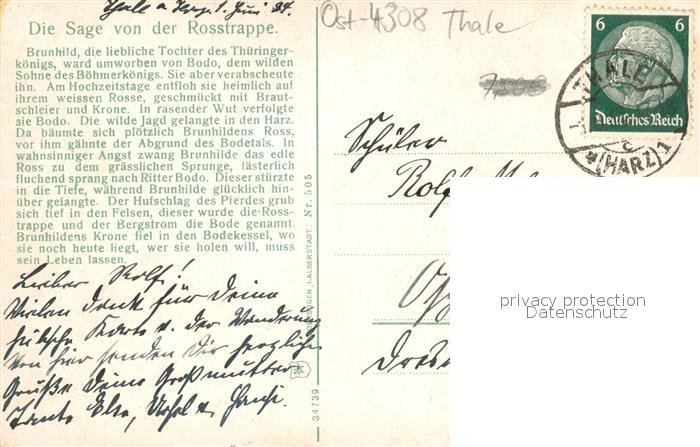 Thale a. Harz 1. Juni 34.
Ost-4308 Thale
Die Sage von der Rosstrappe.
Brunhild, die liebliche Tochter des Thüringer-
königs, ward umworben von Bodo, dem wilden
Sohne des Böhmerkönigs. Sie aber verabscheute
ihn. Am Hochzeitstage entfloh sie heimlich auf
ihrem weissen Rosse, geschmückt mit Braut-
schleier und Krone. In rasender Wut verfolgte
sie Bodo. Die wilde Jagd gelangte in den Harz.
Da bäumte sich plötzlich Brunhildens Ross,
vor ihm gähnte der Abgrund des Bodetals. In
wahnsinniger Angst zwang Brunhilde das edle
Ross zu dem grässlichen Sprunge, lästerlich
fluchend sprang nach Ritter Bodo. Dieser stürzte
in die Tiefe, während Brunhilde glücklich hin-
über gelangte. Der Hufschlag des Pferdes grub
sich tief in den Felsen, dieser wurde die Ross-
trappe und der Bergstrom die Bode genannt.
Brunhildens Krone fiel in den Bodekessel, wo
sie noch heute liegt, wer sie holen will, muss
sein Leben lassen.
Lieber Rolf!
Vielen Dank für Deine
hübsche Karte v. der Wanderung
Von hier senden Dir herzliche
Grüße Deine Großmutter
Tante Else, Ursel u. Hansi.
HALBERSTADT. Nr. 505
34739
6 6
Deutsches Reich
THALE
(HARZ) 1
c
Schüler
Rolf
Dresd
privacy protection
Datenschutz